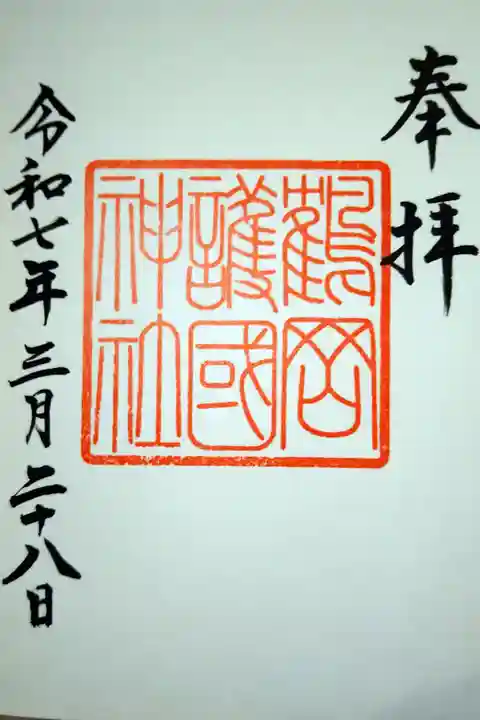 奉拝
鶴岡
護國
神社
令和七年三月二十八日